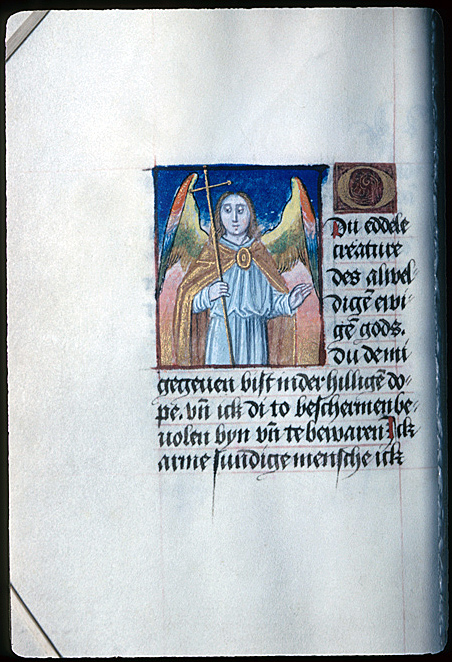 O
Du eddele
creature
des alwel-
digē ewi-
gē gods.
du de mi
gegeuen bist in der hilligē do-
pe. vn̄ ick di to beschermen be-
uolen byn vn̄ te bewaren Ick
arme sundige mensche ick